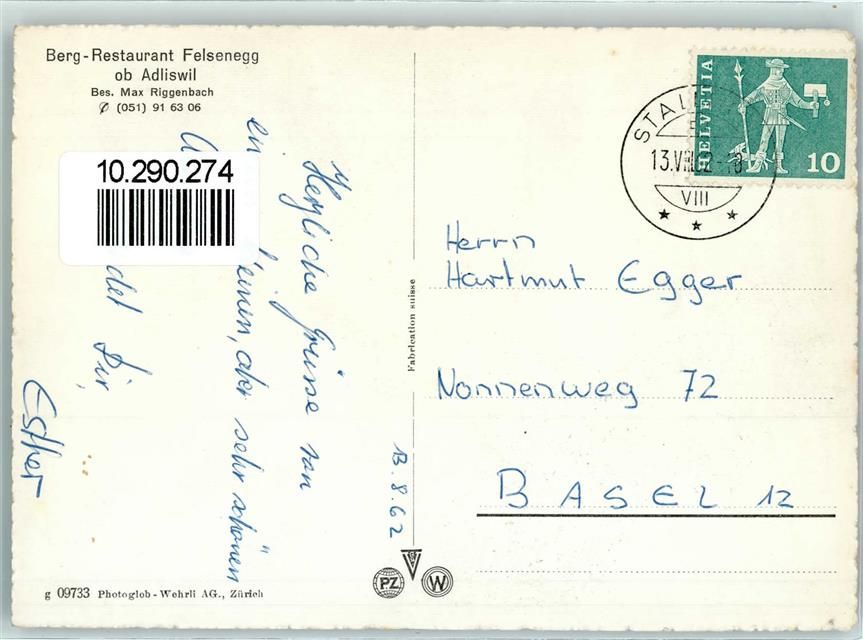 Berg-Restaurant Felsenegg
ob Adliswil
Bes. Max Riggenbach
✆ (051) 91 63 06
10.290.274
13.8.62
Herzliche Grüsse von
einen, aber sehr schönen
det Dir,
Esther
Fabrication suisse
HELVETIA
10
STAL
13.VIII.62-18
VIII
Herrn
Hartmut Egger
Nonnenweg 72
BASEL 12
PZ
W
g 09733 Photoglob-Wehrli AG., Zürich